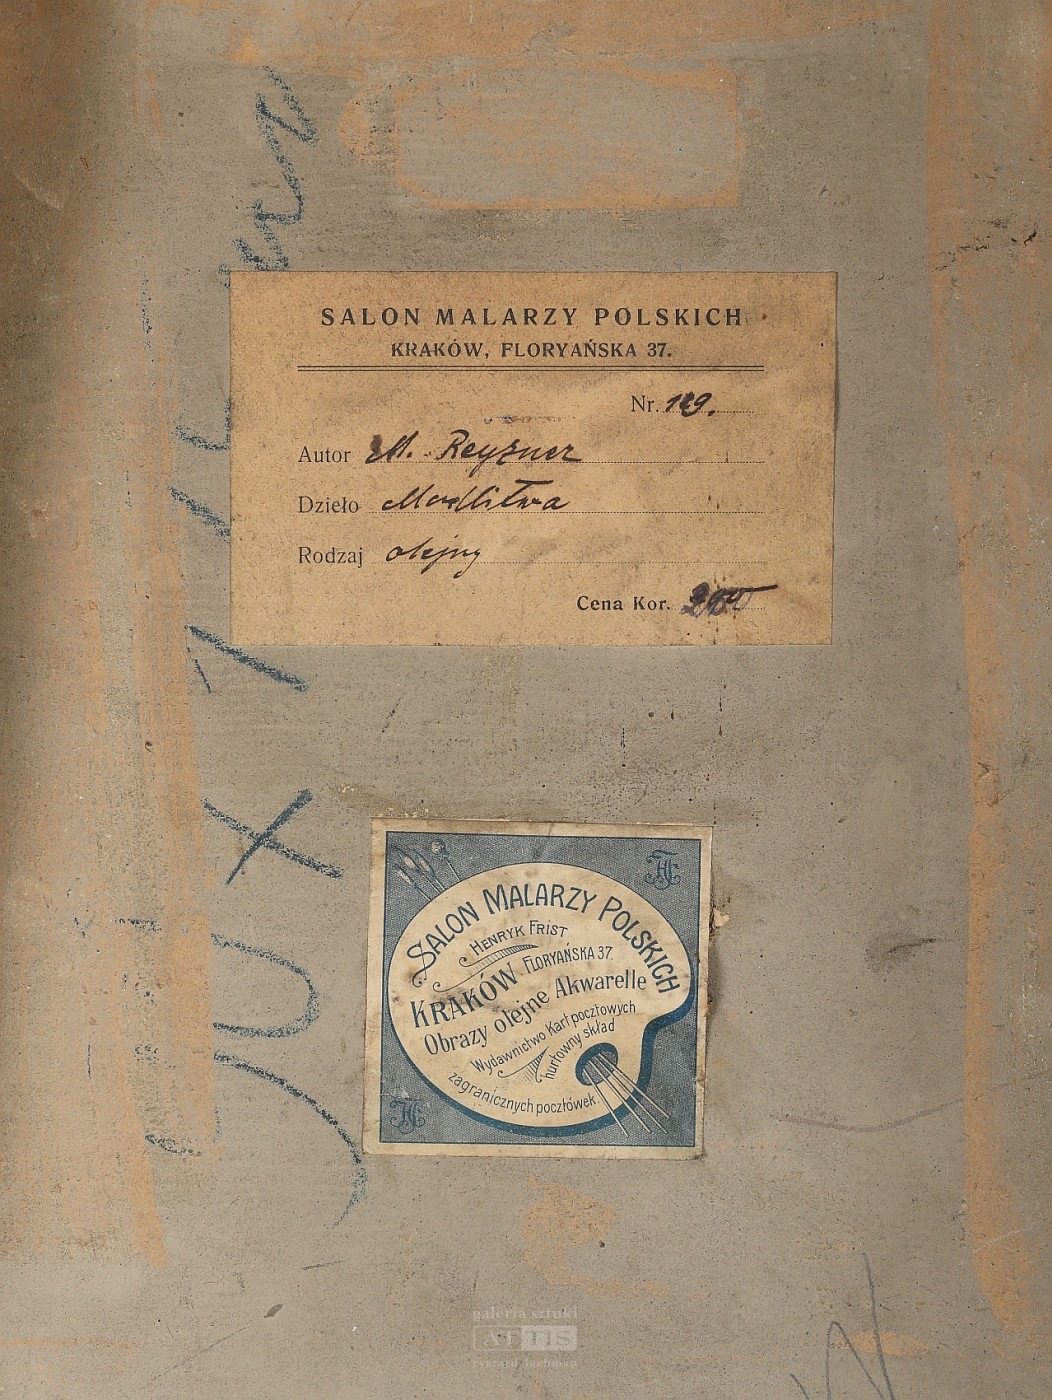 SALON MALARZY POLSKICH
KRAKÓW, FLORYAŃSKA 37.
Nr. 129.
Autor M. Reyzner
Dzieło Modlitwa
Rodzaj olejny
Cena Kor.
SALON MALARZY POLSKICH
HENRYK FRIST
FLORYAŃSKA 37.
KRAKÓW
Obrazy olejne Akwarelle
Wydawnictwo Kart pocztowych
hurtowny skład
zagranicznych pocztówek
galeria sztuki
ATTIS
ryszard lachman